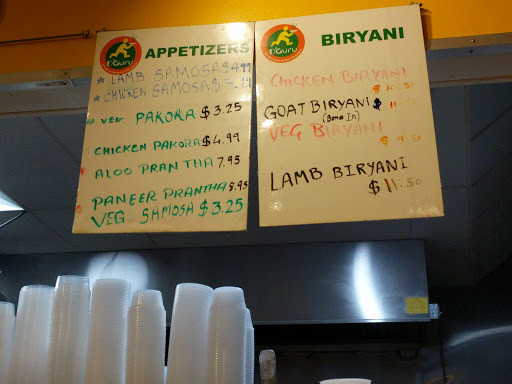 n'Guru
APPETIZERS
LAMB SAMOSA $4.99
CHICKEN SAMOSA $
VEG PAKORA $3.25
CHICKEN PAKORA $4.99
ALOO PRANTHA 7.95
PANEER PRANTHA 8.95
VEG SAMOSA $3.25
n'Guru
BIRYANI
CHICKEN BIRYANI
$ 10.50
GOAT BIRYANI $
(Bone In)
VEG BIRYANI
$ 9.50
LAMB BIRYANI
$ 11.50